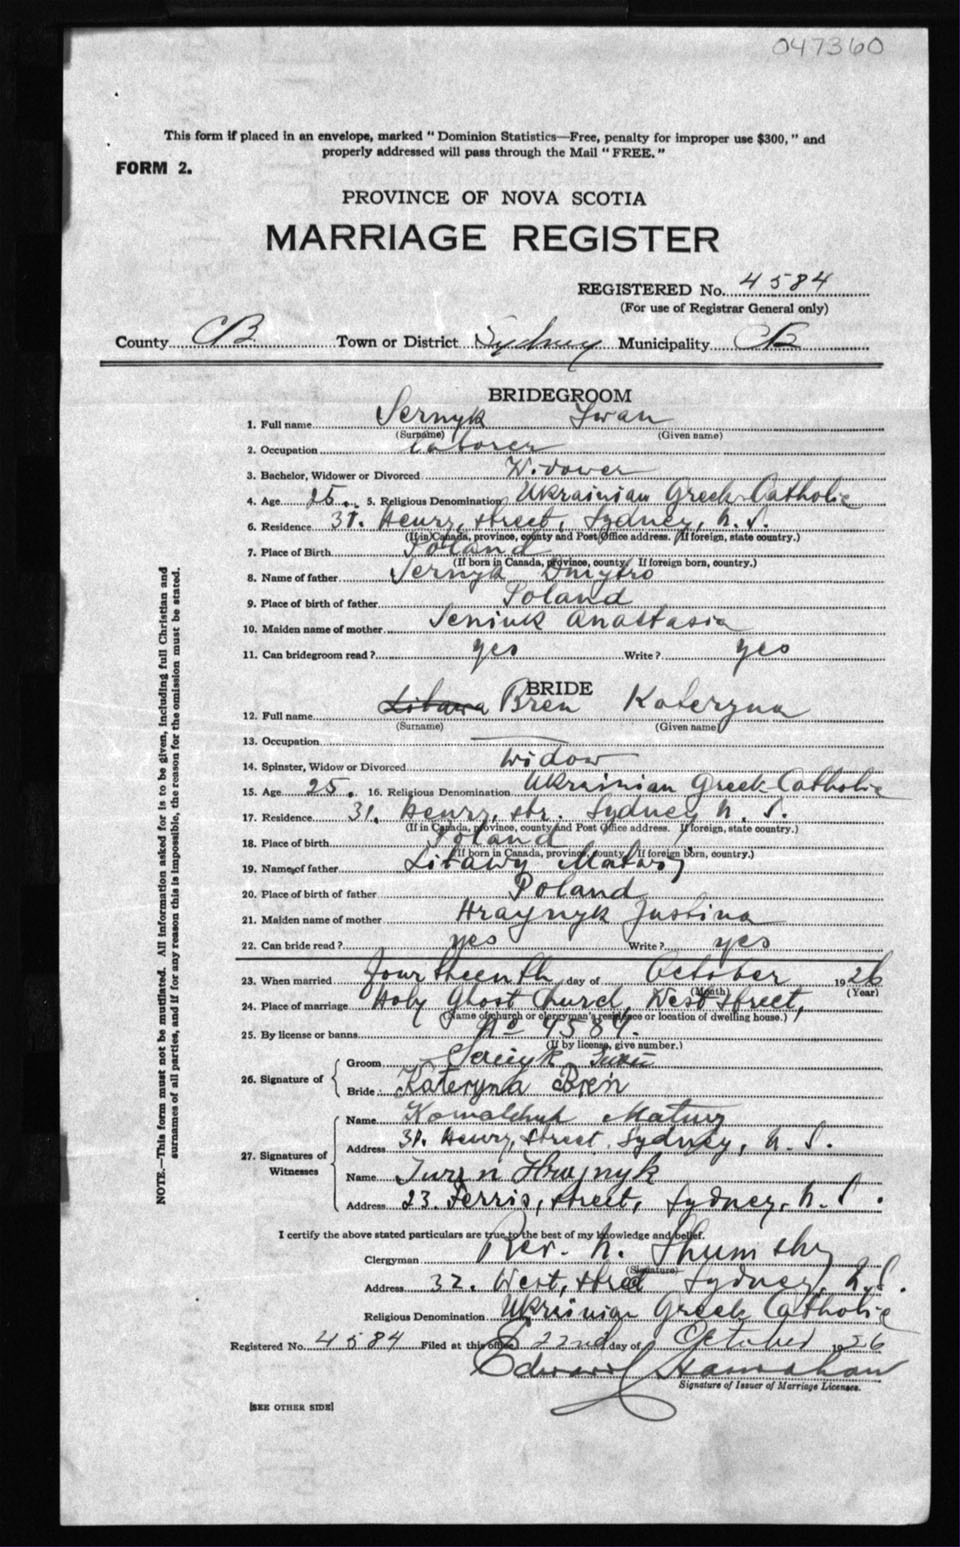 047360
This form if placed in an envelope, marked "Dominion Statistics—Free, penalty for improper use $300," and
properly addressed will pass through the Mail "FREE."
FORM 2.
PROVINCE OF NOVA SCOTIA
MARRIAGE REGISTER
REGISTERED No. 4584
(For use of Registrar General only)
County CB Town or District Sydney Municipality CB
BRIDEGROOM
1. Full name Sernyk Iwan
(Surname) (Given name)
2. Occupation laborer
3. Bachelor, Widower or Divorced Widower
4. Age 25. 5. Religious Denomination Ukrainian Greek-Catholic
6. Residence 31. Henry, street, Sydney, N.S.
(If in Canada, province, county and Post Office address. If foreign, state country.)
7. Place of Birth Poland
(If born in Canada, province, county. If foreign born, country.)
8. Name of father Sernyk Dmytro
9. Place of birth of father Poland
10. Maiden name of mother Seniuk Anastasia
11. Can bridegroom read? yes Write? yes
BRIDE
12. Full name Litawa Bren Kateryna
(Surname) (Given name)
13. Occupation
14. Spinster, Widow or Divorced widow
15. Age 25. 16. Religious Denomination Ukrainian Greek-Catholic
17. Residence 31. Henry, str. Sydney N.S.
(If in Canada, province, county and Post Office address. If foreign, state country.)
18. Place of birth Poland
(If born in Canada, province, county. If foreign born, country.)
19. Name of father Litawy Matwij
20. Place of birth of father Poland
21. Maiden name of mother Hraynyk Justina
22. Can bride read? yes Write? yes
23. When married Fourtheenth day of October 1926
(Month) (Year)
24. Place of marriage Holy Ghost Church, West street,
(Name of church or clergyman's residence or location of dwelling house.)
25. By license or banns No 4584.
(If by license, give number.)
26. Signature of
Groom
Bride Kateryna Bren
27. Signatures of Witnesses
Name Kowalchuk Matwij
Address 31. Henry, street, Sydney, N.S.
Name Hrajnyk
Address 23. Ferris, street, Sydney, N.S.
I certify the above stated particulars are true to the best of my knowledge and belief.
Clergyman Rev. N. Shumsky
(Signature)
Address 32. West, street Sydney, N.S.
Religious Denomination Ukrainian Greek Catholic
Registered No. 4584 Filed at this office 22nd day of October 1926
Edward Hanrahan
Signature of Issuer of Marriage Licenses.
[SEE OTHER SIDE]
NOTE.—This form must not be mutilated. All information asked for is to be given, including full Christian and
surnames of all parties, and if for any reason this is impossible, the reason for the omission must be stated.